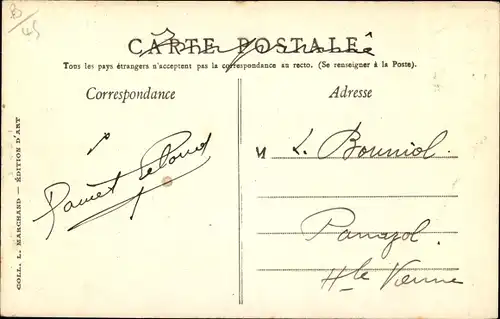 B
45
CARTE POSTALE
Tous les pays étrangers n'acceptent pas la correspondance au recto. (Se renseigner à la Poste).
Correspondance
Adresse
M L. Bouniol
Hte Vienne
COLL. L. MARCHAND — ÉDITION D'ART